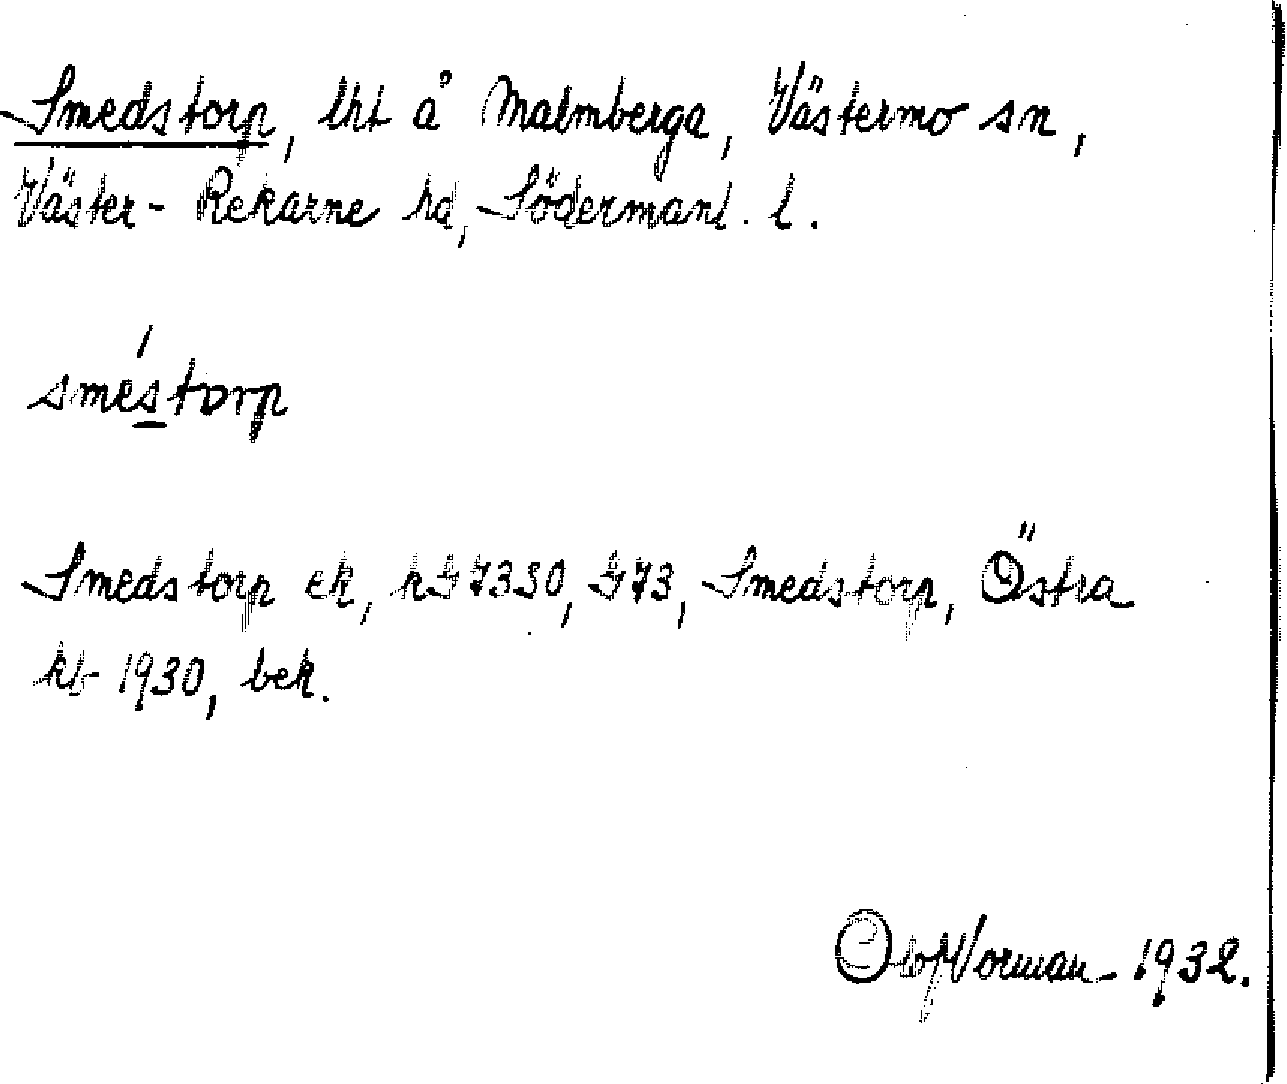 Smedstorp, lht å Malmberga, Västermo sn,
Väster-Rekarne hd, Södermanl. l.
sméstorp
Smedstorp ek, hG7330, G73, Smedstorp, Östra
kb 1930, bek.
Olof Norman 1932.